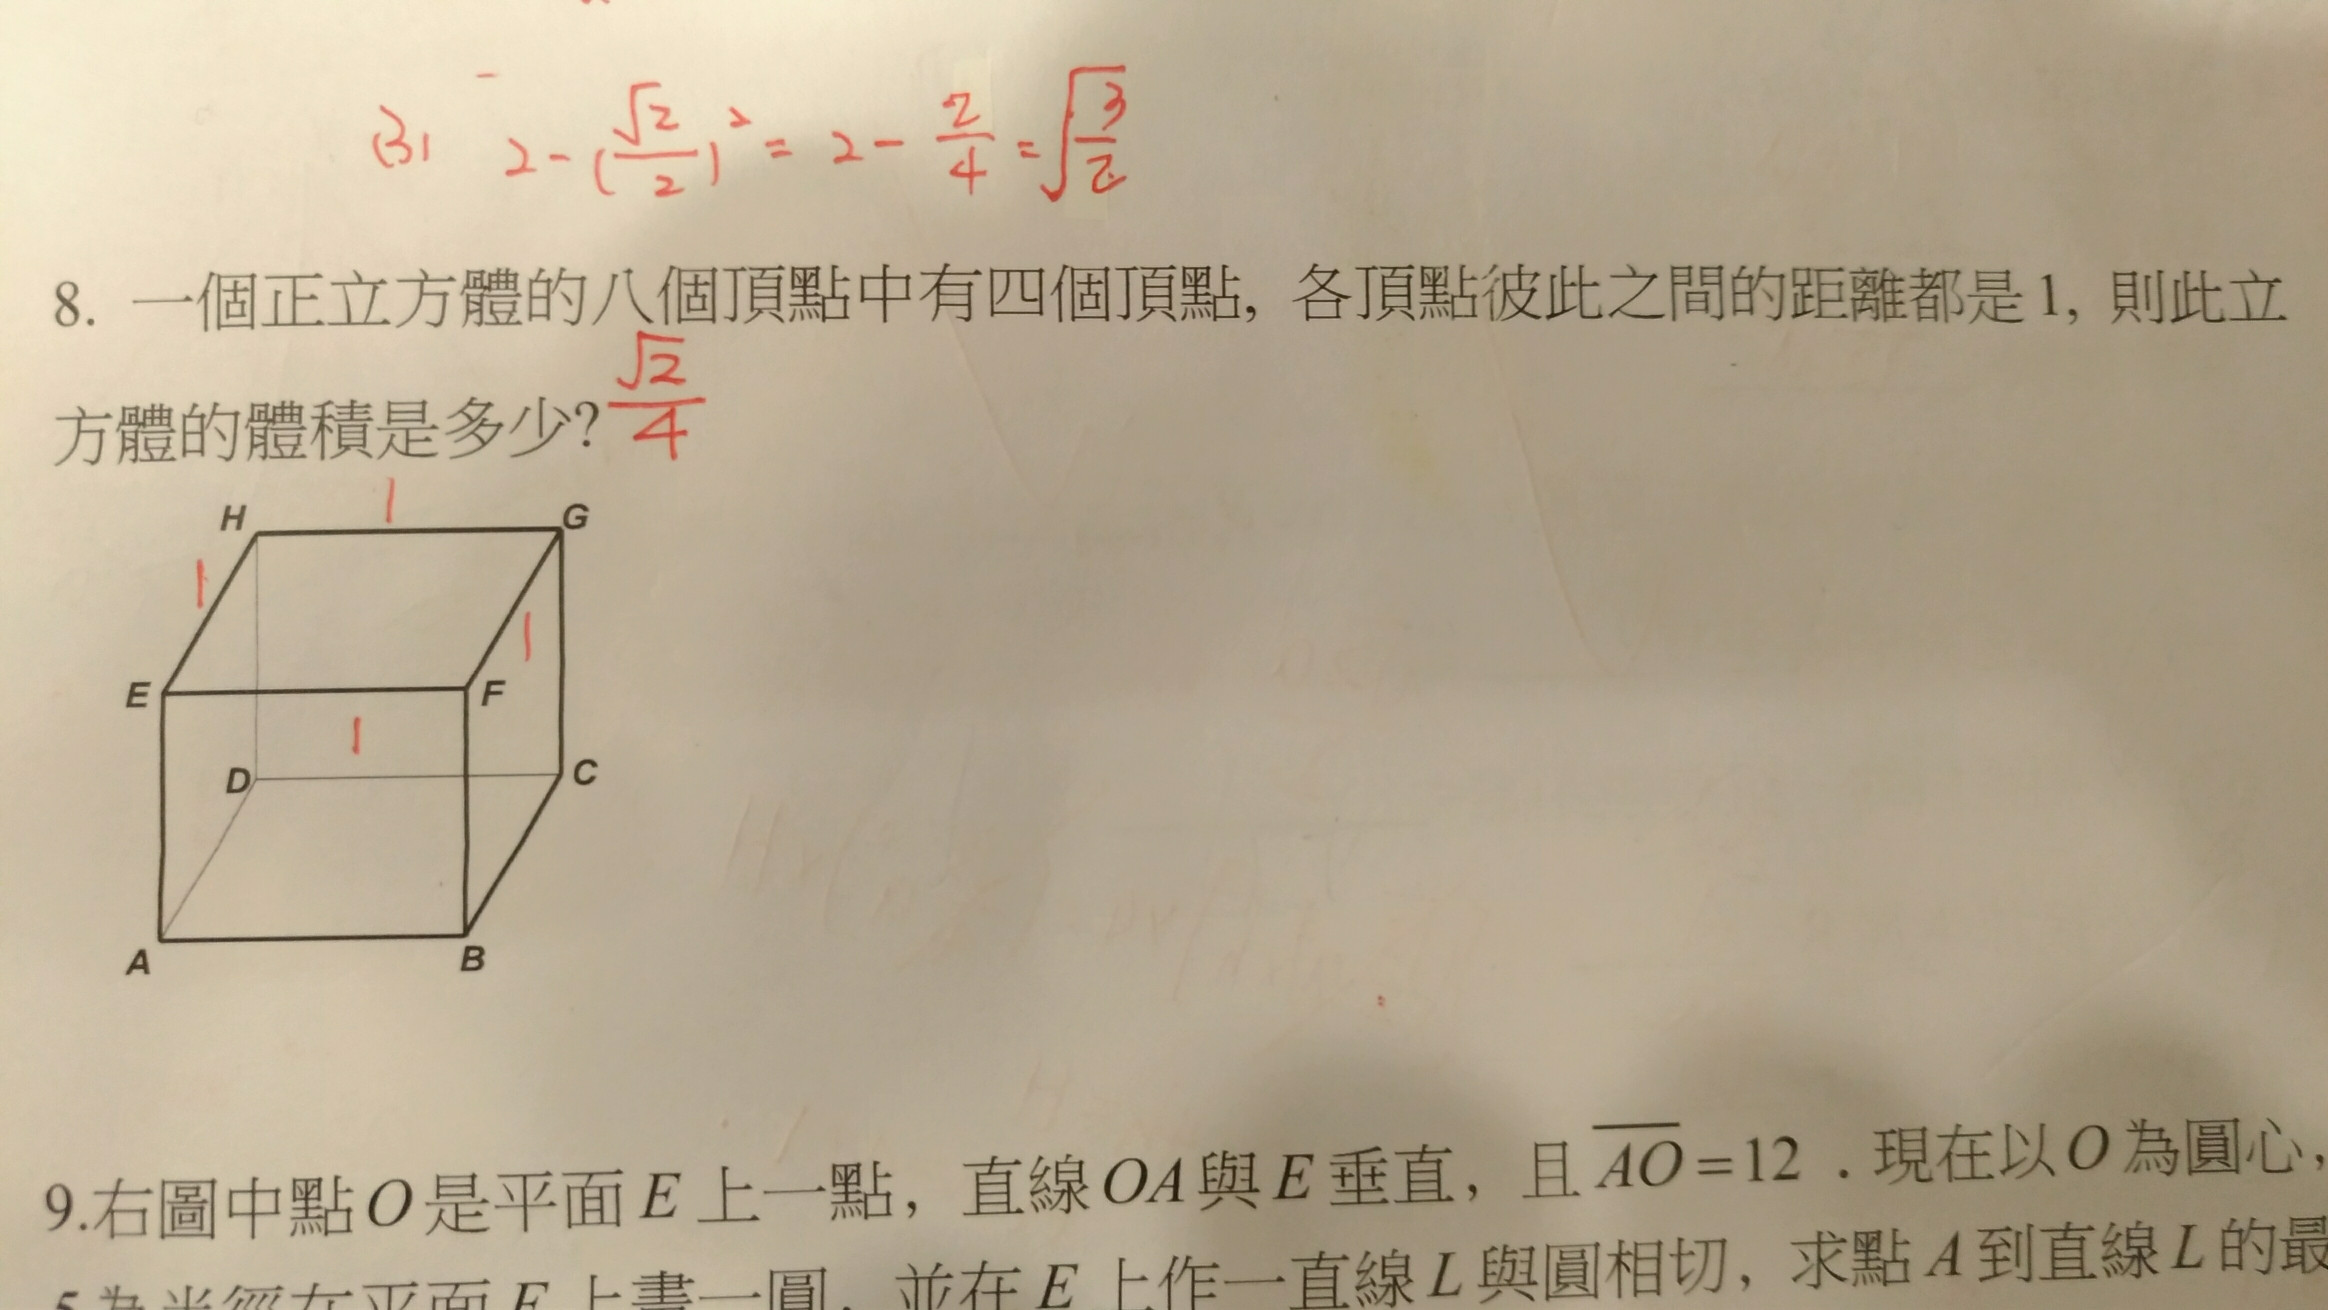 (3) 2-(√2/2)² = 2 - 2/4 = √(3/2)
8. 一個正立方體的八個頂點中有四個頂點, 各頂點彼此之間的距離都是1, 則此立
方體的體積是多少? √2/4
1
H G
1
1
E F
1
D C
A B
9.右圖中點O是平面E上一點, 直線OA與E垂直, 且 \overline{AO}=12 . 現在以O為圓心,
5為半徑在平面E上畫一圓, 並在E上作一直線L與圓相切, 求點A到直線L的最